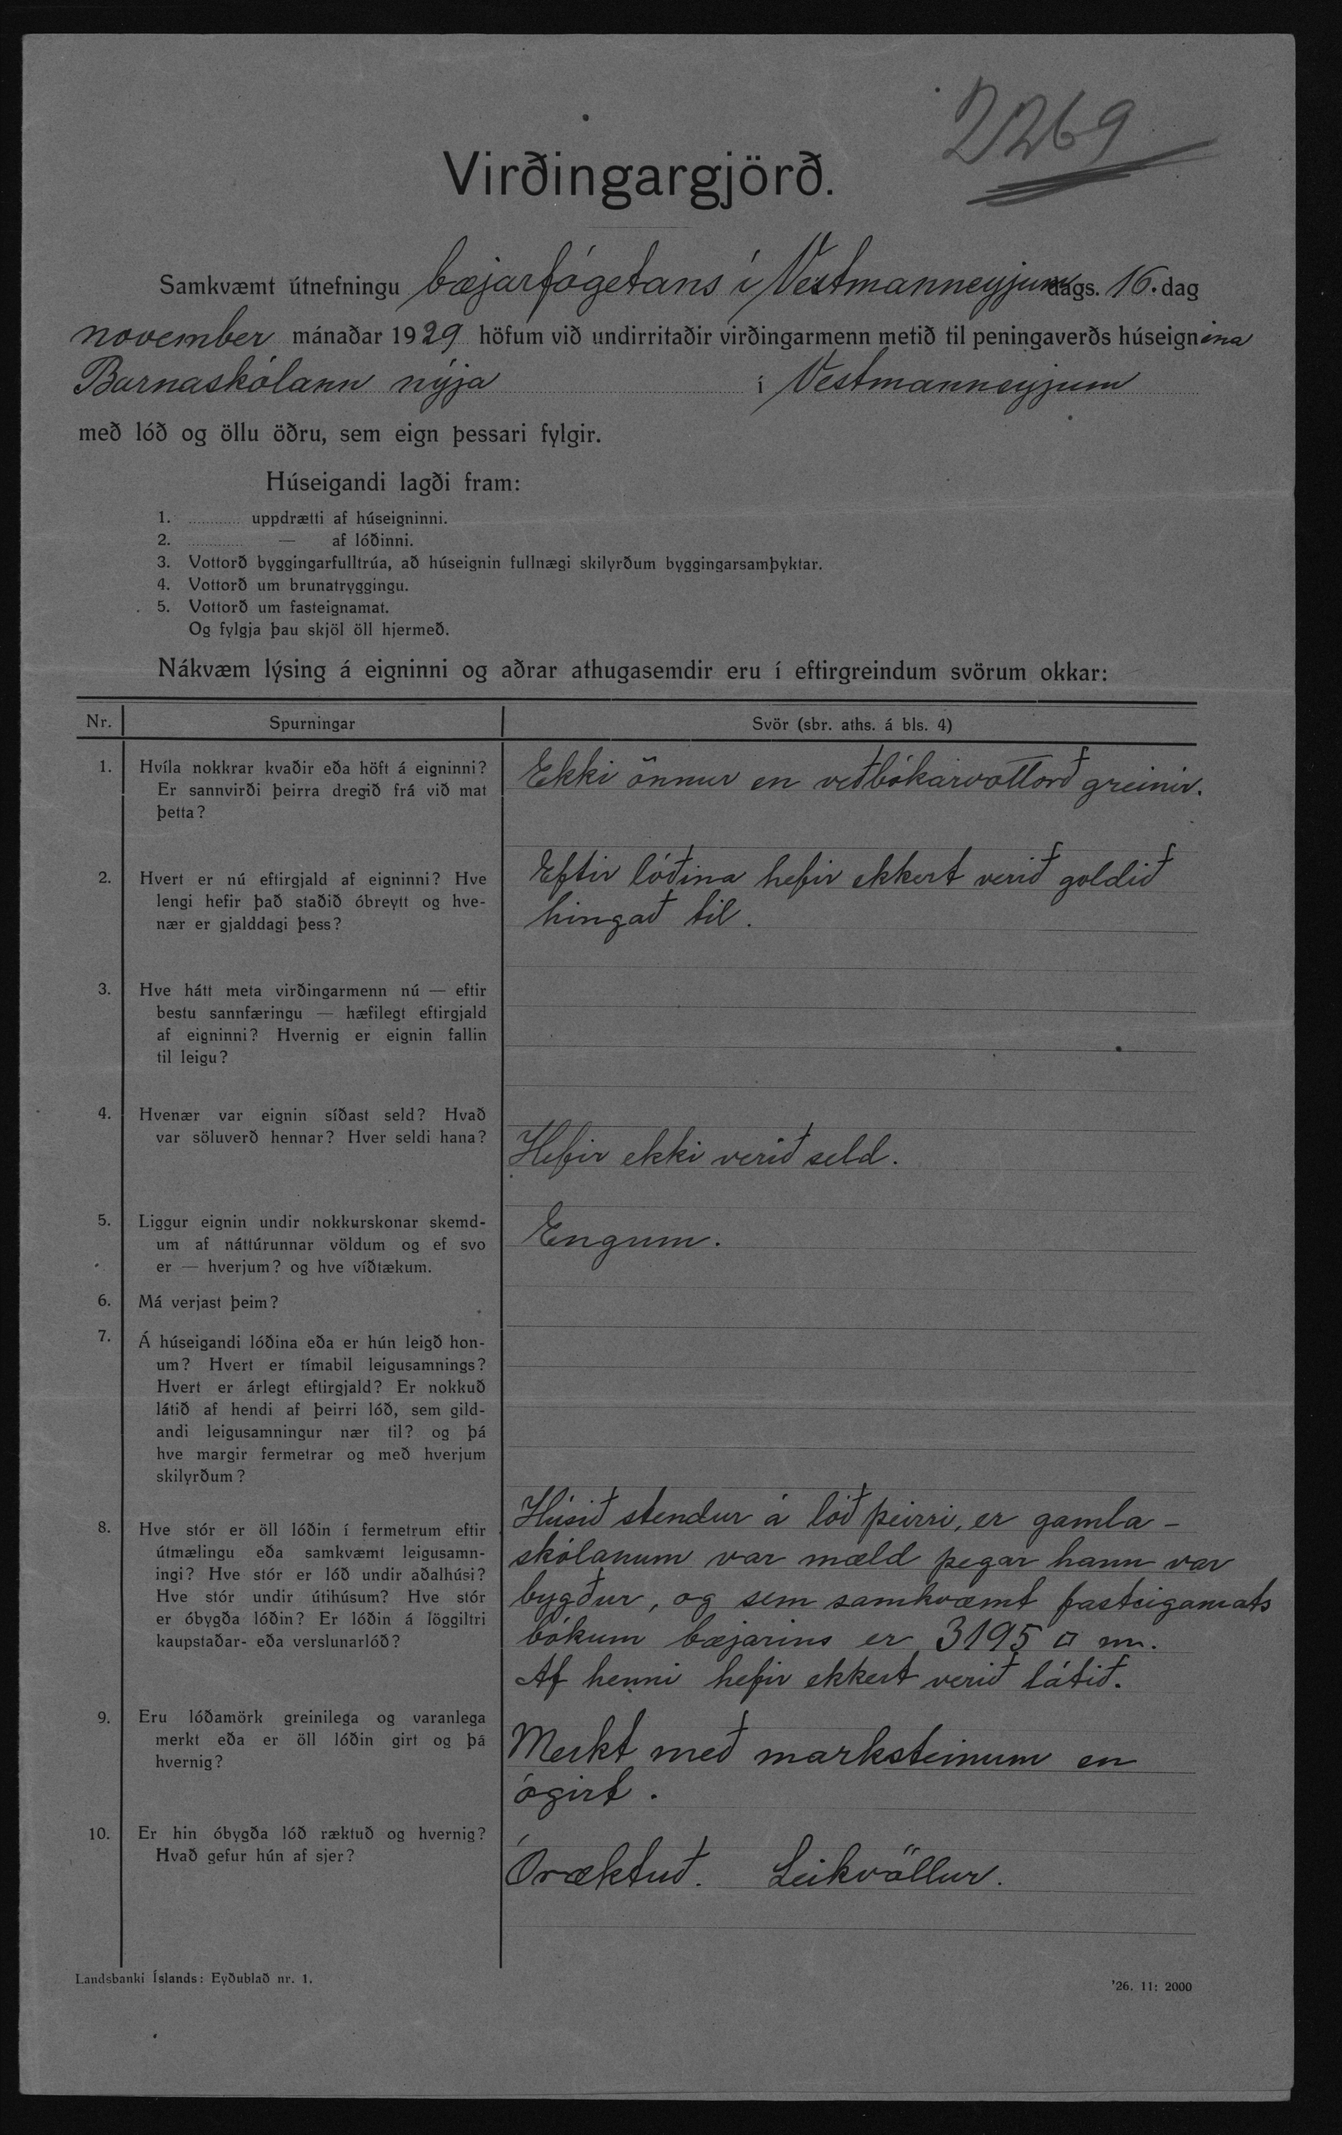 2269
Virðingargjörð.
Samkvæmt útnefningu bæjarfógetans í Vestmanneyjum dags. 16. dag
november mánaðar 1929 höfum við undirritaðir virðingarmenn metið til peningaverðs húseignina
Barnaskólann nýja í Vestmanneyjum
með lóð og öllu öðru, sem eign þessari fylgir.
Húseigandi lagði fram:
1. ............ uppdrætti af húseigninni.
2. ............ — af lóðinni.
3. Vottorð byggingarfulltrúa, að húseignin fullnægi skilyrðum byggingarsamþyktar.
4. Vottorð um brunatryggingu.
5. Vottorð um fasteignamat.
Og fylgja þau skjöl öll hjermeð.
Nákvæm lýsing á eigninni og aðrar athugasemdir eru í eftirgreindum svörum okkar:
Nr. Spurningar Svör (sbr. aths. á bls. 4)
1. Hvíla nokkrar kvaðir eða höft á eigninni?
Er sannvirði þeirra dregið frá við mat
þetta?
Ekki önnur en veðbókarvottorð greinir.
2. Hvert er nú eftirgjald af eigninni? Hve
lengi hefir það staðið óbreytt og hve-
nær er gjalddagi þess?
Eftir lóðina hefir ekkert verið goldið
hingað til.
3. Hve hátt meta virðingarmenn nú — eftir
bestu sannfæringu — hæfilegt eftirgjald
af eigninni? Hvernig er eignin fallin
til leigu?
4. Hvenær var eignin síðast seld? Hvað
var söluverð hennar? Hver seldi hana?
Hefir ekki verið seld.
5. Liggur eignin undir nokkurskonar skemd-
um af náttúrunnar völdum og ef svo
er — hverjum? og hve víðtækum.
Engum.
6. Má verjast þeim?
7. Á húseigandi lóðina eða er hún leigð hon-
um? Hvert er tímabil leigusamnings?
Hvert er árlegt eftirgjald? Er nokkuð
látið af hendi af þeirri lóð, sem gild-
andi leigusamningur nær til? og þá
hve margir fermetrar og með hverjum
skilyrðum?
8. Hve stór er öll lóðin í fermetrum eftir
útmælingu eða samkvæmt leigusamn-
ingi? Hve stór er lóð undir aðalhúsi?
Hve stór undir útihúsum? Hve stór
er óbygða lóðin? Er lóðin á löggiltri
kaupstaðar- eða verslunarlóð?
Húsið stendur á lóð þeirri, er gamla-
skólanum var mæld þegar hann var
bygður, og sem samkvæmt fasteigamats
bókum bæjarins er 3195 □ m.
Af henni hefir ekkert verið látið.
9. Eru lóðamörk greinilega og varanlega
merkt eða er öll lóðin girt og þá
hvernig?
Merkt með marksteinum en
ógirt.
10. Er hin óbygða lóð ræktuð og hvernig?
Hvað gefur hún af sjer?
Óræktuð. Leikvöllur.
Landsbanki Íslands: Eyðublað nr. 1. '26. 11: 2000